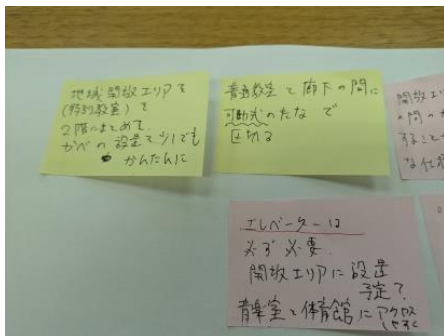 地域開放エリアを
(特別教室)を
2階にまとめて、
かべの設置を少しでも
かんたんに
普通教室と廊下の間に
可動式のたなで
区切る
開放エリ
の間の
すること
な仕
エレベーターは
必ず必要.
開放エリアに設置
予定?
音楽室と体育館にアクセス
しやすく